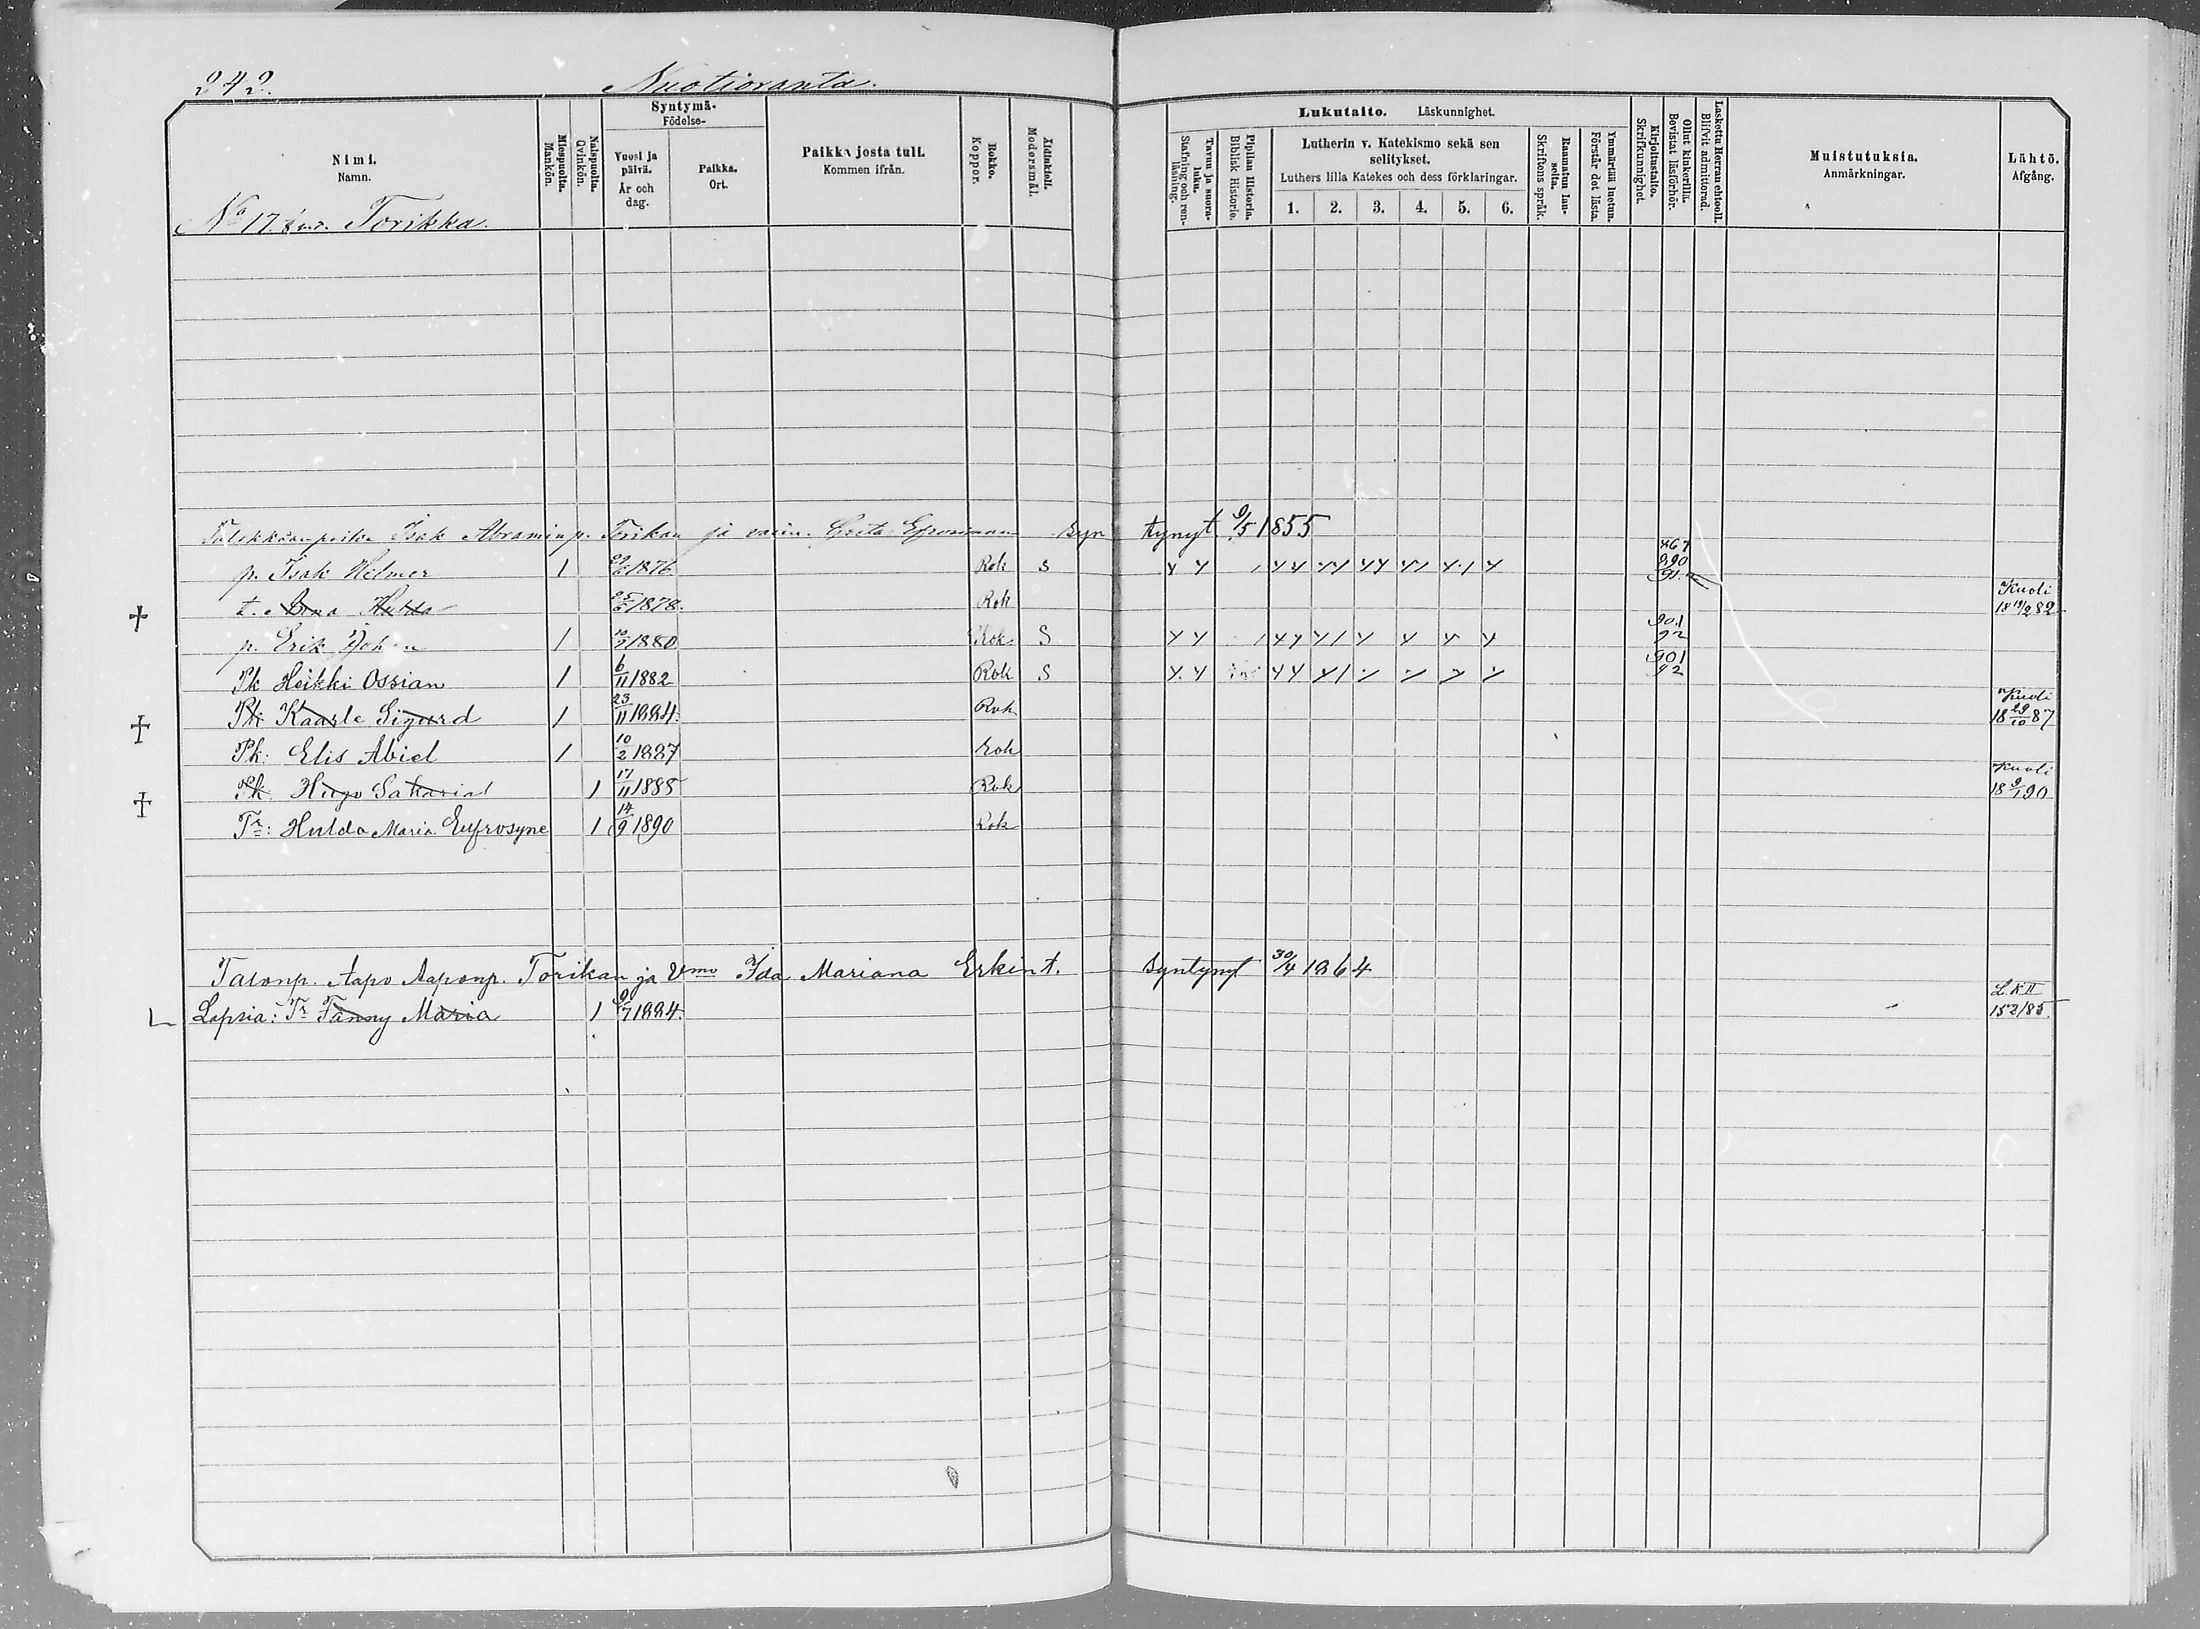 242.
Nuotioranta.
Nimi.
Namn.
Miespuolta.
Mankön.
Naispuolta.
Qvinkön.
Syntymä-
Födelse-
Vuosi ja päivä.
År och dag.
Paikka.
Ort.
Paikka josta tuli.
Kommen ifrån.
Rokko.
Koppor.
Äidinkieli.
Modersmål.
Lukutaito. Läskunnighet.
Tavuu ja suora-luku.
Stafning och ren-läsning.
Piplian Historia.
Biblisk Historie.
Lutherin v. Katekismo sekä sen selitykset.
Luthers lilla Katekes och dess förklaringar.
1. 2. 3. 4. 5. 6.
Raamatun lauseita.
Skriftens språk.
Ymmärtää luetun.
Förstår det lästa.
Kirjoitustaito.
Skrifkunnighet.
Ollut kinkerillä.
Bevistat läsförhör.
Laskettu Herran ehtooll.
Blifvit admitterad.
Muistutuksia.
Anmärkningar.
Lähtö.
Afgång.
No 17. Torikka.
Isak Abramin p. Torikan ja vaim. Greta syn tynyt 9/5 1855
p. Isak Hilmer 1 1876 Rok S
t. Hulda 25/6 1878. Rok Kuoli 18 19/2 82
p. Erik Joh 1 1880 Rok S 901 92
Pk Heikki Ossian 1 6/11 1882 Rok S 901 92
Pk Kaarle Sigurd 1 23/11 1884. Rok Kuoli 18 29/10 87
Pk: Elis Abiel 1 10/2 1887 Rok
Pk. Hugo Sakarias 1 17/11 1888 Rok Kuoli 18 9/1 90
Tr: Hulda Maria Eufrosyne 1 14/9 1890 Rok
Talonp. Aapo Aaponp. Torikan ja Vmo Ida Mariana Erkin t. syntynyt 30/4 1864
Lapsia: Tr Fanny Maria 1 9/7 1884. L.K II 152/85.